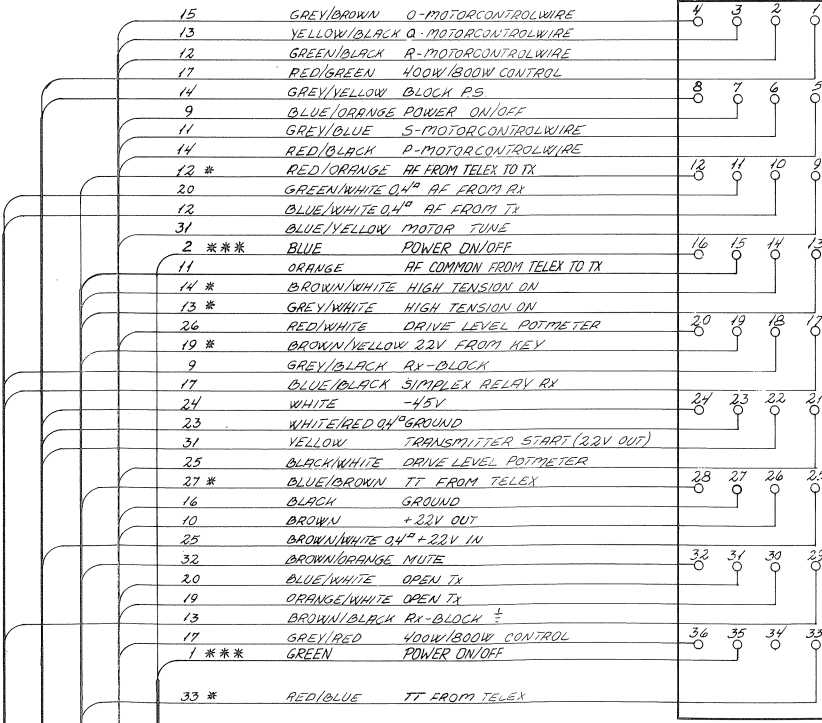 15 GREY/BROWN O-MOTORCONTROLWIRE 4 3 2 1
13 YELLOW/BLACK Q-MOTORCONTROLWIRE
12 GREEN/BLACK R-MOTORCONTROLWIRE
17 RED/GREEN 400W/800W CONTROL
14 GREY/YELLOW BLOCK P.S. 8 7 6 5
9 BLUE/ORANGE POWER ON/OFF
11 GREY/BLUE S-MOTORCONTROLWIRE
14 RED/BLACK P-MOTORCONTROLWIRE
12 * RED/ORANGE AF FROM TELEX TO TX 12 11 10 9
20 GREEN/WHITE 0,4¤ AF FROM RX
12 BLUE/WHITE 0,4¤ AF FROM TX
31 BLUE/YELLOW MOTOR TUNE
2 *** BLUE POWER ON/OFF 16 15 14 13
11 ORANGE AF COMMON FROM TELEX TO TX
14 * BROWN/WHITE HIGH TENSION ON
13 * GREY/WHITE HIGH TENSION ON
26 RED/WHITE DRIVE LEVEL POTMETER 20 19 18 17
19 * BROWN/YELLOW 22V FROM KEY
9 GREY/BLACK RX-BLOCK
17 BLUE/BLACK SIMPLEX RELAY RX
24 WHITE -45V 24 23 22 21
23 WHITE/RED 0,4¤ GROUND
31 YELLOW TRANSMITTER START (22V OUT)
25 BLACK/WHITE DRIVE LEVEL POTMETER
27 * BLUE/BROWN TT FROM TELEX 28 27 26 25
16 BLACK GROUND
10 BROWN +22V OUT
25 BROWN/WHITE 0,4¤ +22V IN
32 BROWN/ORANGE MUTE 32 31 30 29
20 BLUE/WHITE OPEN TX
19 ORANGE/WHITE OPEN TX
13 BROWN/BLACK RX-BLOCK
17 GREY/RED 400W/800W CONTROL 36 35 34 33
1 *** GREEN POWER ON/OFF
33 * RED/BLUE TT FROM TELEX